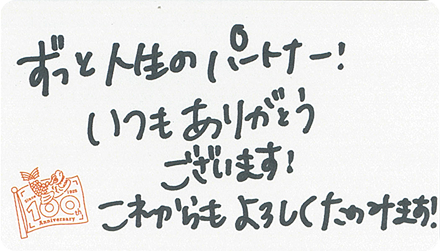 ずっと人生のパートナー!
いつもありがとう
ございます!
これからもよろしくたのみます!
100th
Anniversary